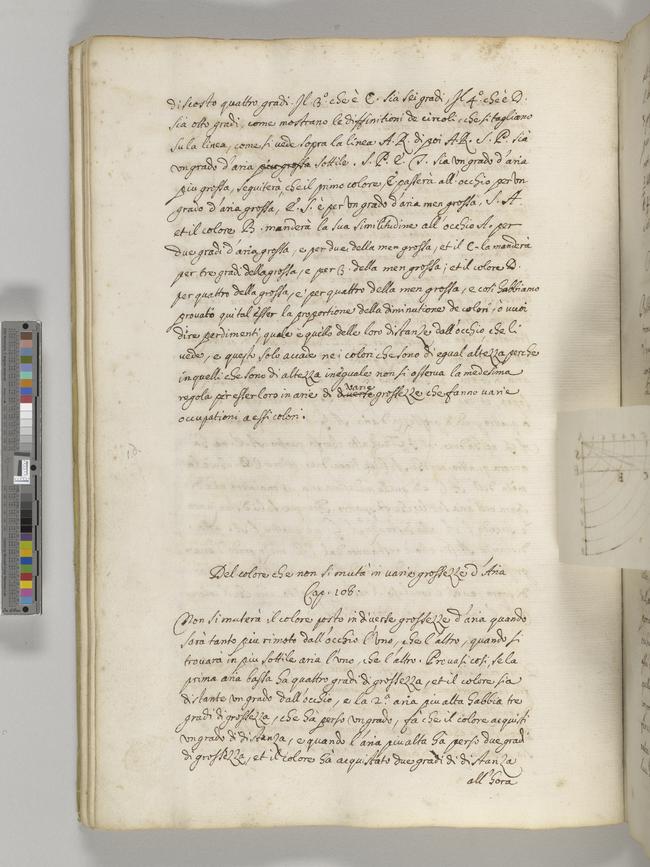 discosto quattro gradi. Il 3.º che è C. sia sei gradi, Il 4.º che è D.
sia otto gradi, come mostrano le diffinitioni de circoli, che si tagliano
su la linea, come si vede sopra la linea A. R. di poi A R. S. P. sia
un grado d'aria piu grossa sottile. S. P. E. T. sia un grado d'aria
piu grossa, seguiterà, che il primo colore, passerà all'occhio per un
grado d'aria grossa, E. S. e per un grado d'aria men grossa, S. A.
et il colore B. manderà la sua similitudine all'occhio A. per
due gradi d'aria grossa, e per due della men grossa, et il C. la manderà
per tre gradi della grossa, e per 3. della men grossa; et il colore D.
per quattro della grossa, e per quattro della men grossa, e così habbiamo
provato qui tal esser la proportione della diminutione de colori, ò vuoi
dire perdimenti quale è quello delle loro distanze dall'occhio che li
vede, e questo solo accade ne i colori che sono di egual altezza, perche
in quelli che sono di altezza ineguale non si osserva la medesima
regola per esser loro in arie di diverse varie grossezze che fanno varie
occupationi a essi colori.
Del colore che non si muta in varie grossezze d'Aria
Cap. 108.
Non si muterà il colore posto in diverse grossezze d'aria quando
sarà tanto piu rimoto dall'occhio l'uno, che l'altro, quando si
trovarà in piu sottile aria l'uno, che l'altro. Provasi così, se la
prima aria bassa ha quattro gradi di grossezza, et il colore sia
distante un grado dall'occhio, e la 2.ª aria piu alta habbia tre
gradi di grossezza, che ha perso un grado, fa che il colore acquisti
un grado di distanza, e quando l'aria piu alta ha perso due gradi
di grossezze, et il colore ha acquistato due gradi di distanza
all'hora